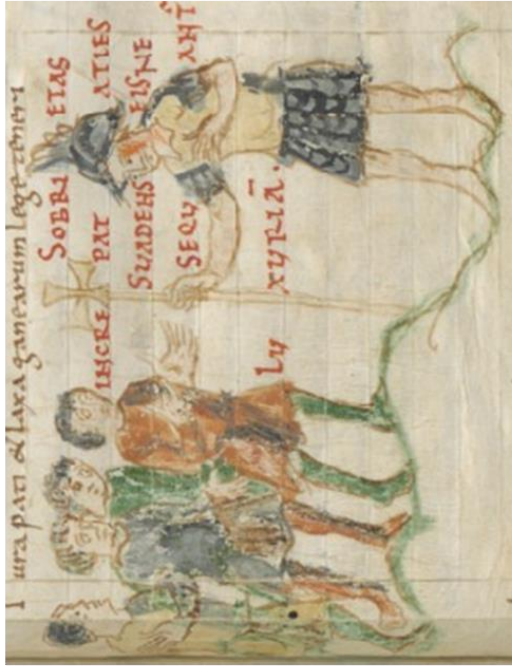 Iura pati & laxa ganearum lege teneri
SOBRI ETAS
INCRE PAT ATIES
SUADENS EIS NE
SEQU ANT̄
LU XURIĀ.